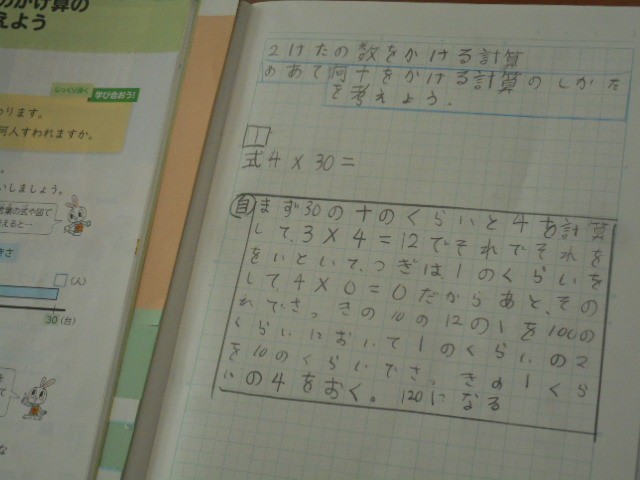 かけ算の
えよう
じっくり深く 学び合おう!
わります。
何人すわれますか。
いしましょう。
言葉の式や図で
(人)
30(台)
2けたの数をかける計算
めあて何十をかける計算のしかた
を考えよう。
1
式4×30=
自 まず30の十のくらいと4を計算
して、3×4=12でそれでそれを
をいといて、つぎは1のくらいを
して4×0=0だからあと、その
れでさっきの10の12の1を100の
くらいにおいて1のくらいの2
を10のくらいでさ、きの1くら
いの4をおく。120になる